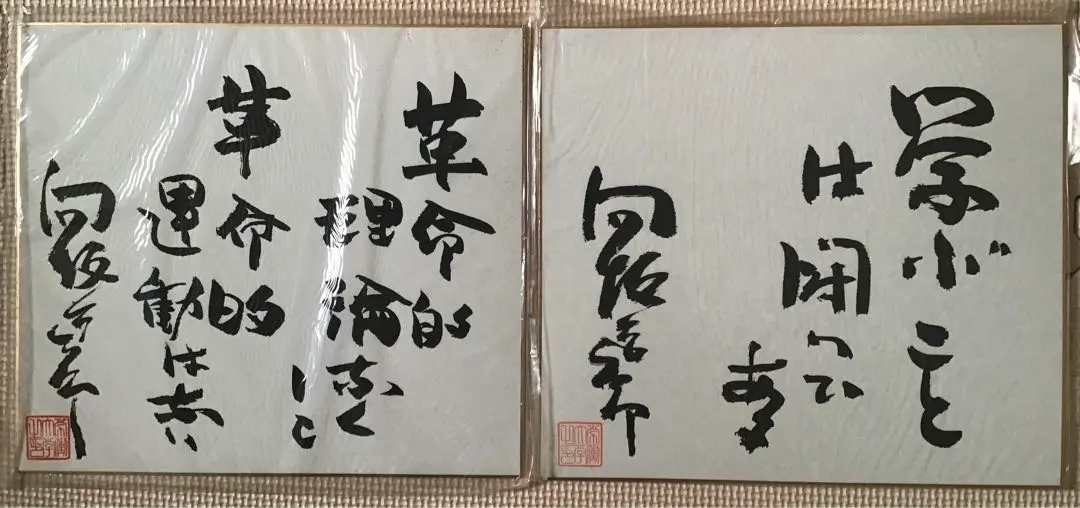 学ぶこと
は闘
向坂逸郎
革命的
理論なく
して
革命的
運動はない
向坂逸郎